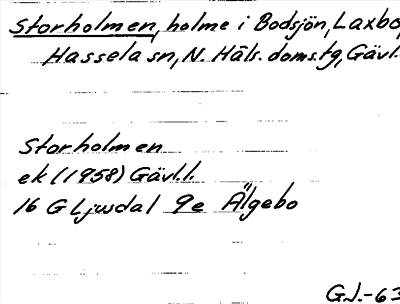 Storholmen, holme i Bodsjön, Laxbo,
Hassela sn, N. Häls. doms.tg, Gävl.
Storholmen
ek (1958) Gävl.l.
16 G Ljusdal 9e Älgebo
GJ.-63